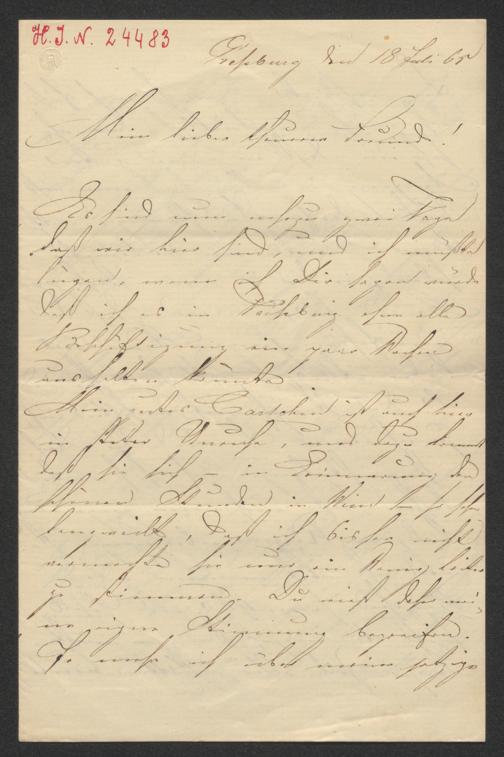 H. I. N. 24483
Preßburg den 18 Juli 65
Mein lieber theurer Freund!
Es sind nun schon zwei Tage
daß wir hier sind, und ich müßte
lügen, wenn ich Dir sagen würde
daß ich es in Preßburg ohne alle
Beschäftigung ein paar Wochen
aushalten könnte
Mein gutes ist auch hier
in steter Unruhe, und dazu kommt
daß sie sich – in Erinnerung der
schönen Stunden in Wien – so sehr
langweilt, daß ich bisher nicht
vermochte sie nur ein wenig heiter
zu stimmen. Du wirst daher mei-
ne eigene Stimmung begreifen.
Je mehr ich über meine jetzige